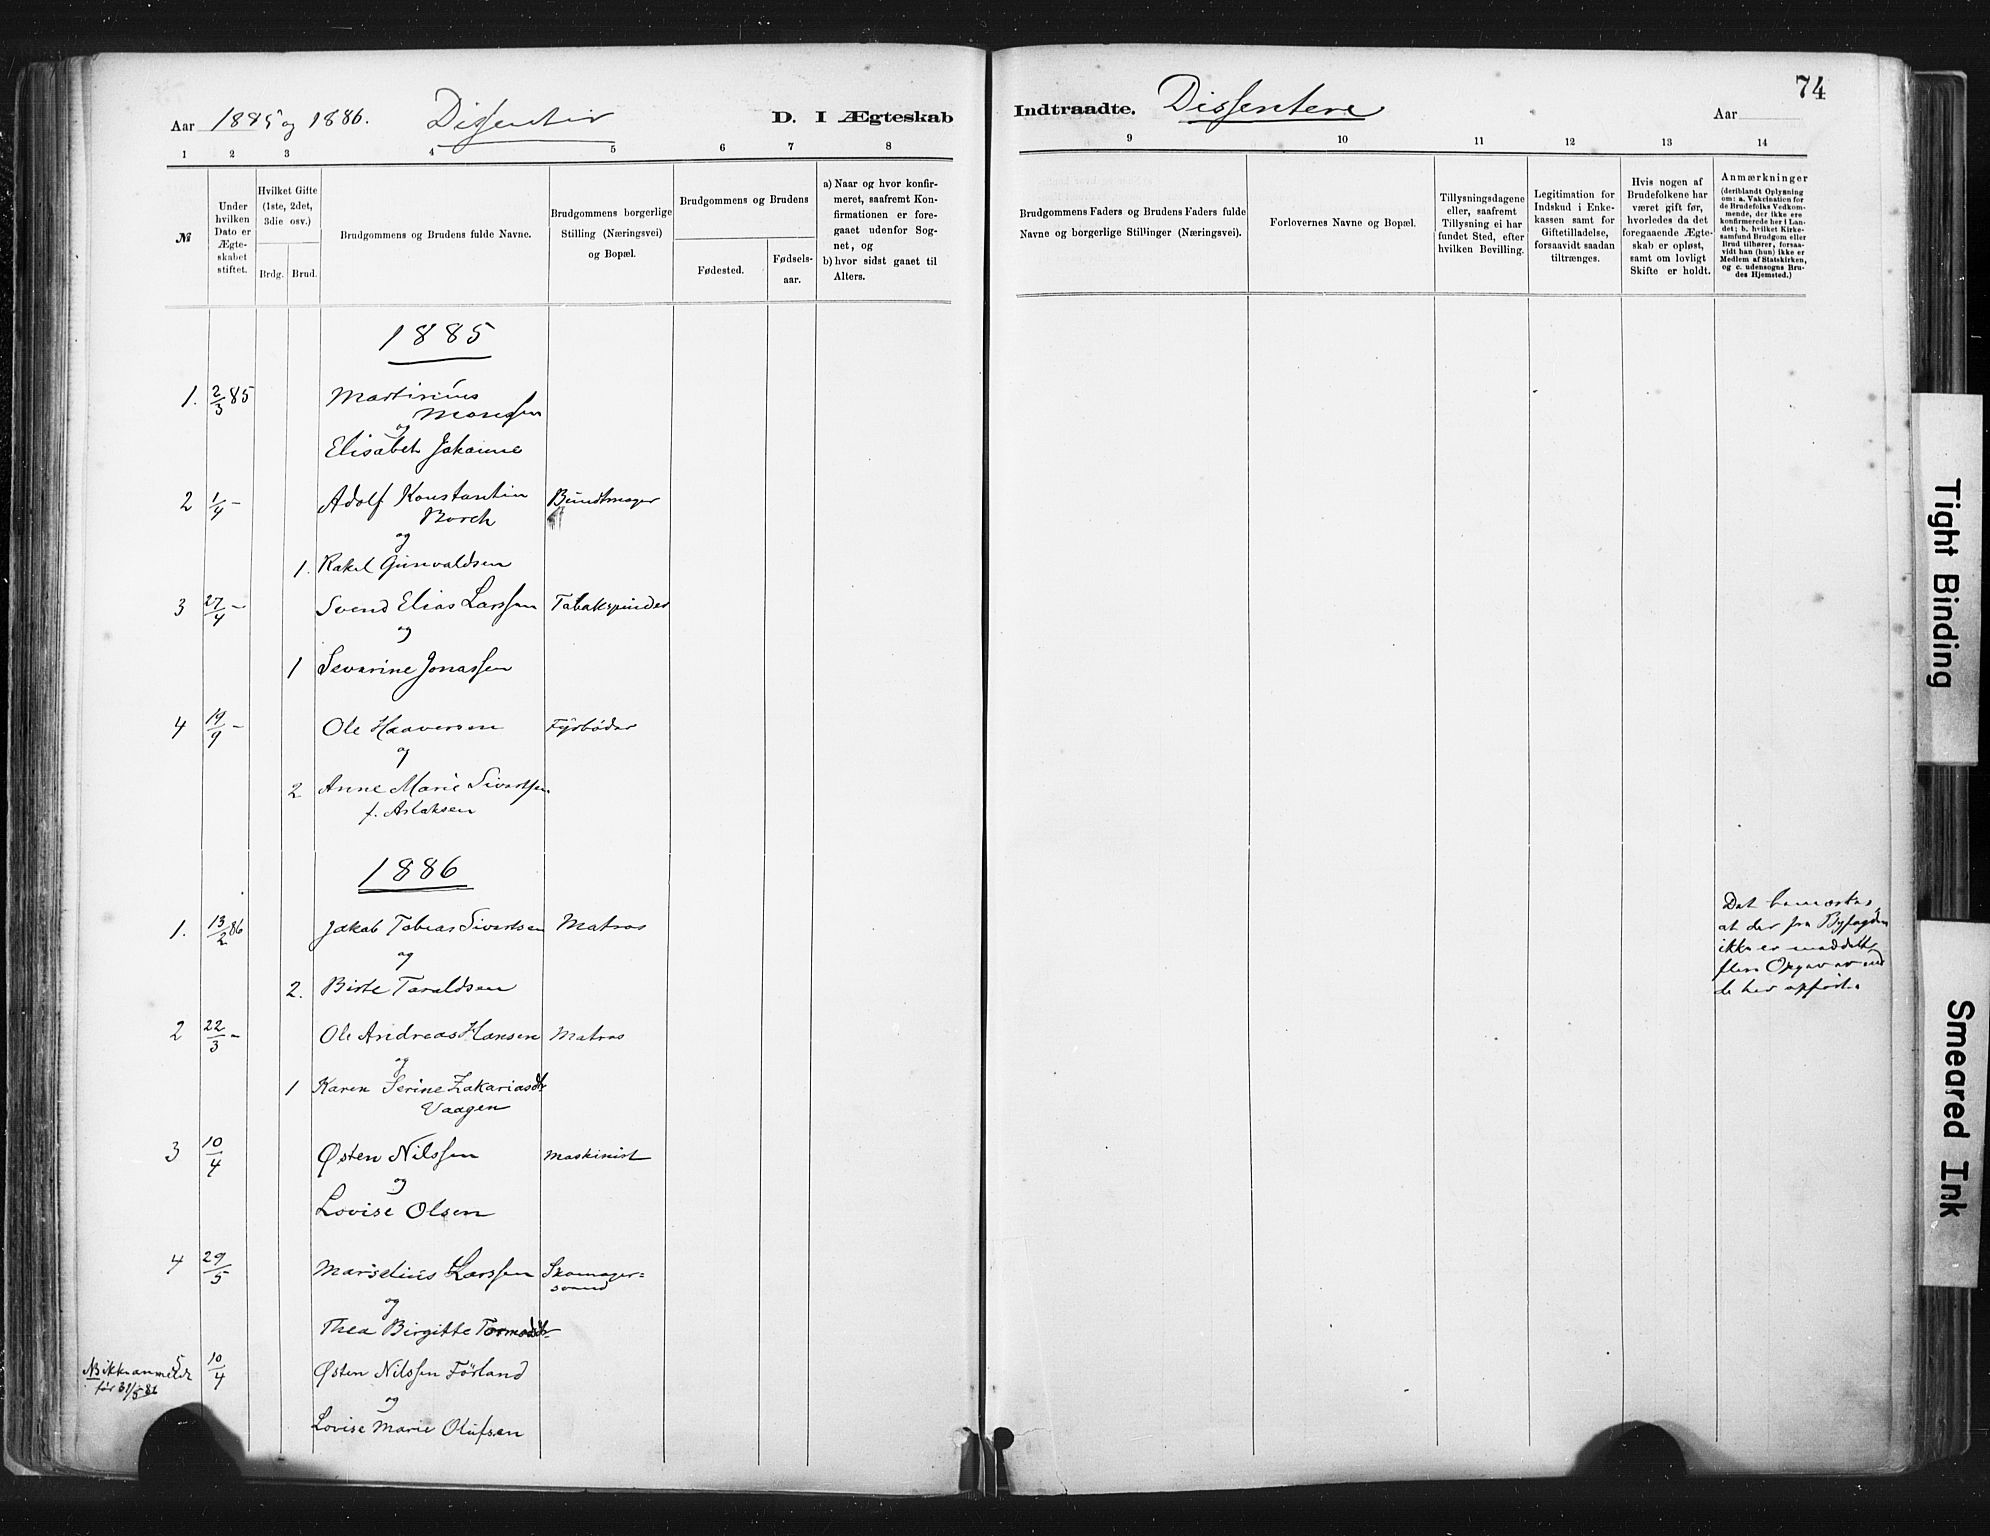 74
Aar 1885 og 1886. Dissenter D. I Ægteskab Indtraadte. Dissentere Aar
1 2 3 4 5 6 7 8 9 10 11 12 13 14
№
Under hvilken Dato er Ægteskabet stiftet.
Hvilket Gifte (1ste, 2det, 3die osv.)
Brdg. Brud.
Brudgommens og Brudens fulde Navne.
Brudgommens borgerlige Stilling (Næringsvei) og Bopæl.
Brudgommens og Brudens
Fødested.
Fødselsaar.
a) Naar og hvor konfirmeret, saafremt Konfirmationen er foregaaet udenfor Sognet, og
b) hvor sidst gaaet til Alters.
Brudgommens Faders og Brudens Faders fulde Navne og borgerlige Stillinger (Næringsvei).
Forlovernes Navne og Bopæl.
Tillysningsdagene eller, saafremt Tillysning ei har fundet Sted, efter hvilken Bevilling.
Legitimation for Indskud i Enkekassen samt for Giftetilladelse, forsaavidt saadan tiltrænges.
Hvis nogen af Brudefolkene har været gift før, hvorledes da det foregaaende Ægteskab er opløst, samt om lovligt Skifte er holdt.
Anmærkninger
(deriblandt Oplysning om: a. Vakcination for de Brudefolks Vedkommende, der ikke ere konfirmerede her i Landet; b. hvilket Kirkesamfund Brudgom eller Brud tilhører, forsaavidt han (hun) ikke er Medlem af Statskirken, og c. udensogns Brudes Hjemsted.)
1885
1. 2/3 85 Martinius
Monssen
og
Elisabet Johanne
2 1/4 – Adolf Konstantin Bundtmager
Borch
og
1. Rakel Gunvaldsen
3 27/4 – Svend Elias Larssen Tobakspinder
og
1 Severine Jonassen
4 19/9 – Ole Haaversen Fyrbøder
og
2 Anne Marie Sivertsen
f. Aslaksen
1886
1. 13/2 86 Jakob Tobias Sivertsen Matros
og
2. Birte Taraldsen
Det bemærkes,
at der fra Byfogden
ikke er meddelt
flere Opgaver end
de her opførte.
2 22/3 – Ole Andreas Hansen Matros
og
1 Karen Serine Zakariasdtr
Vaagen
3 10/4 Østen Nilssen Maskinist
og
Lovise Olsen
4 29/5 Marselius Larssen Skomager=
svend
og
Thea Birgitte Tormodsdtr
5 10/4 Østen Nilssen Förland
NB ikke anmeldt
før 31/5 86
og
Lovise Marie Olufsen
Tight Binding
Smeared Ink